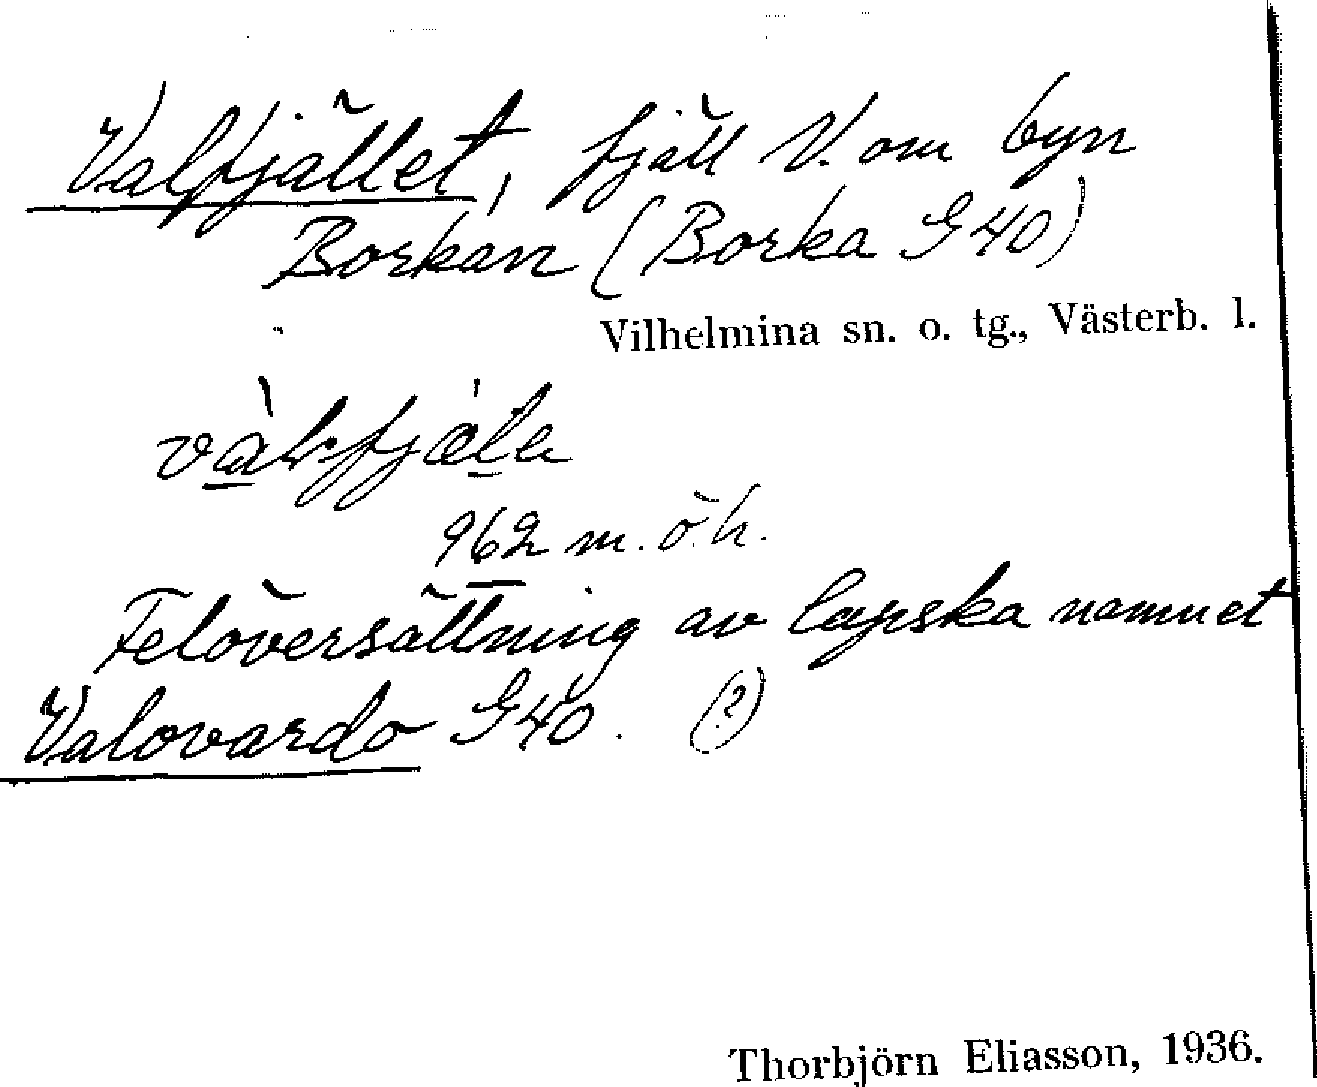 Valfjället, fjäll V. om byn
Borkan (Borka G40)
Vilhelmina sn. o. tg., Västerb. l.
962 m. ö. h.
Felöversättning av lapska namnet
Valovardo G40. (?)
Thorbjörn Eliasson, 1936.